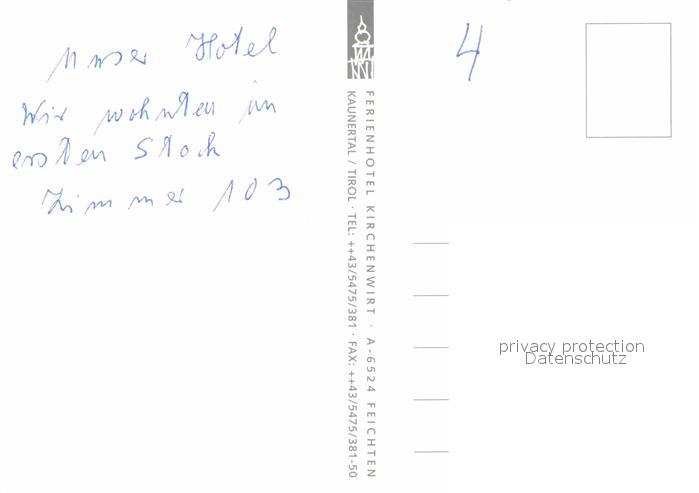 Unser Hotel
Wir wohnten im
ersten Stock
Zimmer 103
FERIENHOTEL KIRCHENWIRT · A-6524 FEICHTEN
KAUNERTAL / TIROL · TEL: ++43/5475/381 · FAX: ++43/5475/381-50
4
privacy protection
Datenschutz